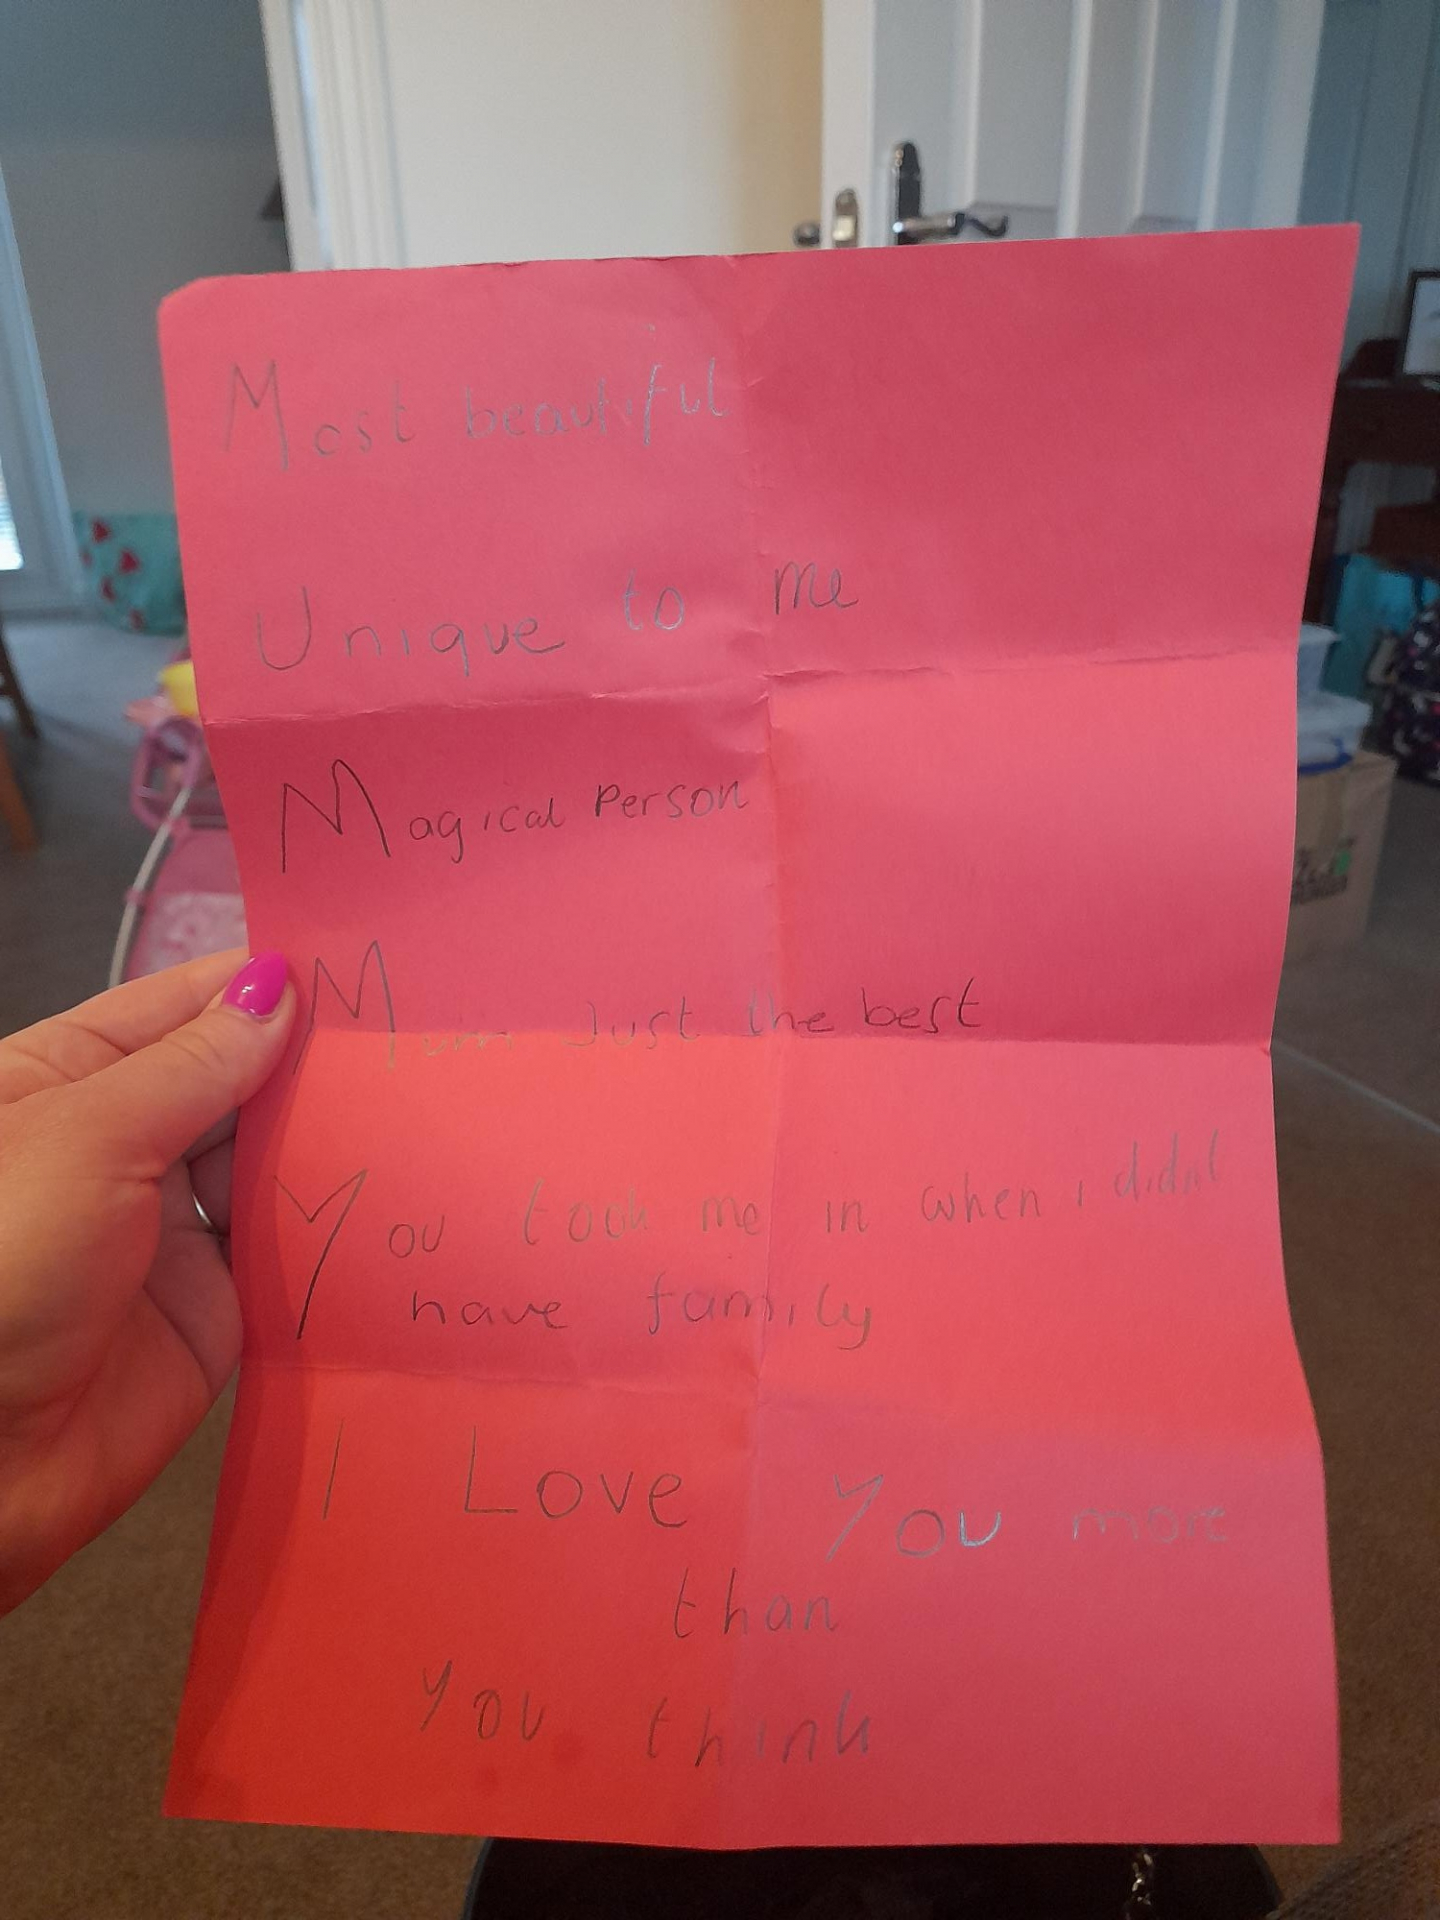 Most beautiful
Unique to me
Magical Person
Mum Just the best
You took me in when i didnt
have family
I Love You more
than
you think